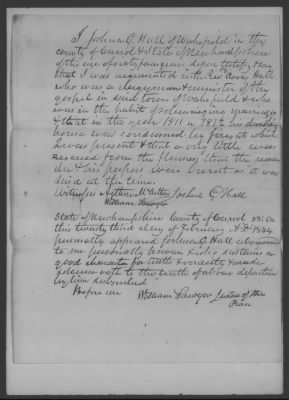 I Joshua C. Hall of Wakefield in the
county of Carrol & State of Newhampshire
of the age of sixty four years depose testify & say
that I was acquainted with Rev Avery Hall
who was a clergyman & minister of the
gospel in said town of Wakefield & who
was in the habit of solemnizing marriages
& that in the year 1811 or 1812 his dwelling
house was consumed by fire at which
I was present & that a very little was
rescued from the flames, that the
his papers were burnt as it was
said at the time.
Witnesses Joshua C Hall
William Sawyer
State of Newhampshire County of Carrol SS: On
this twenty third day of February A.D. 1854
personally appeared Joshua C. Hall
to me personally known & who sustains a
good character for truth & veracity & made
solemn oath to the truth of above deposition
by him subscribed
Before me William Sawyer Justice of the
Peace